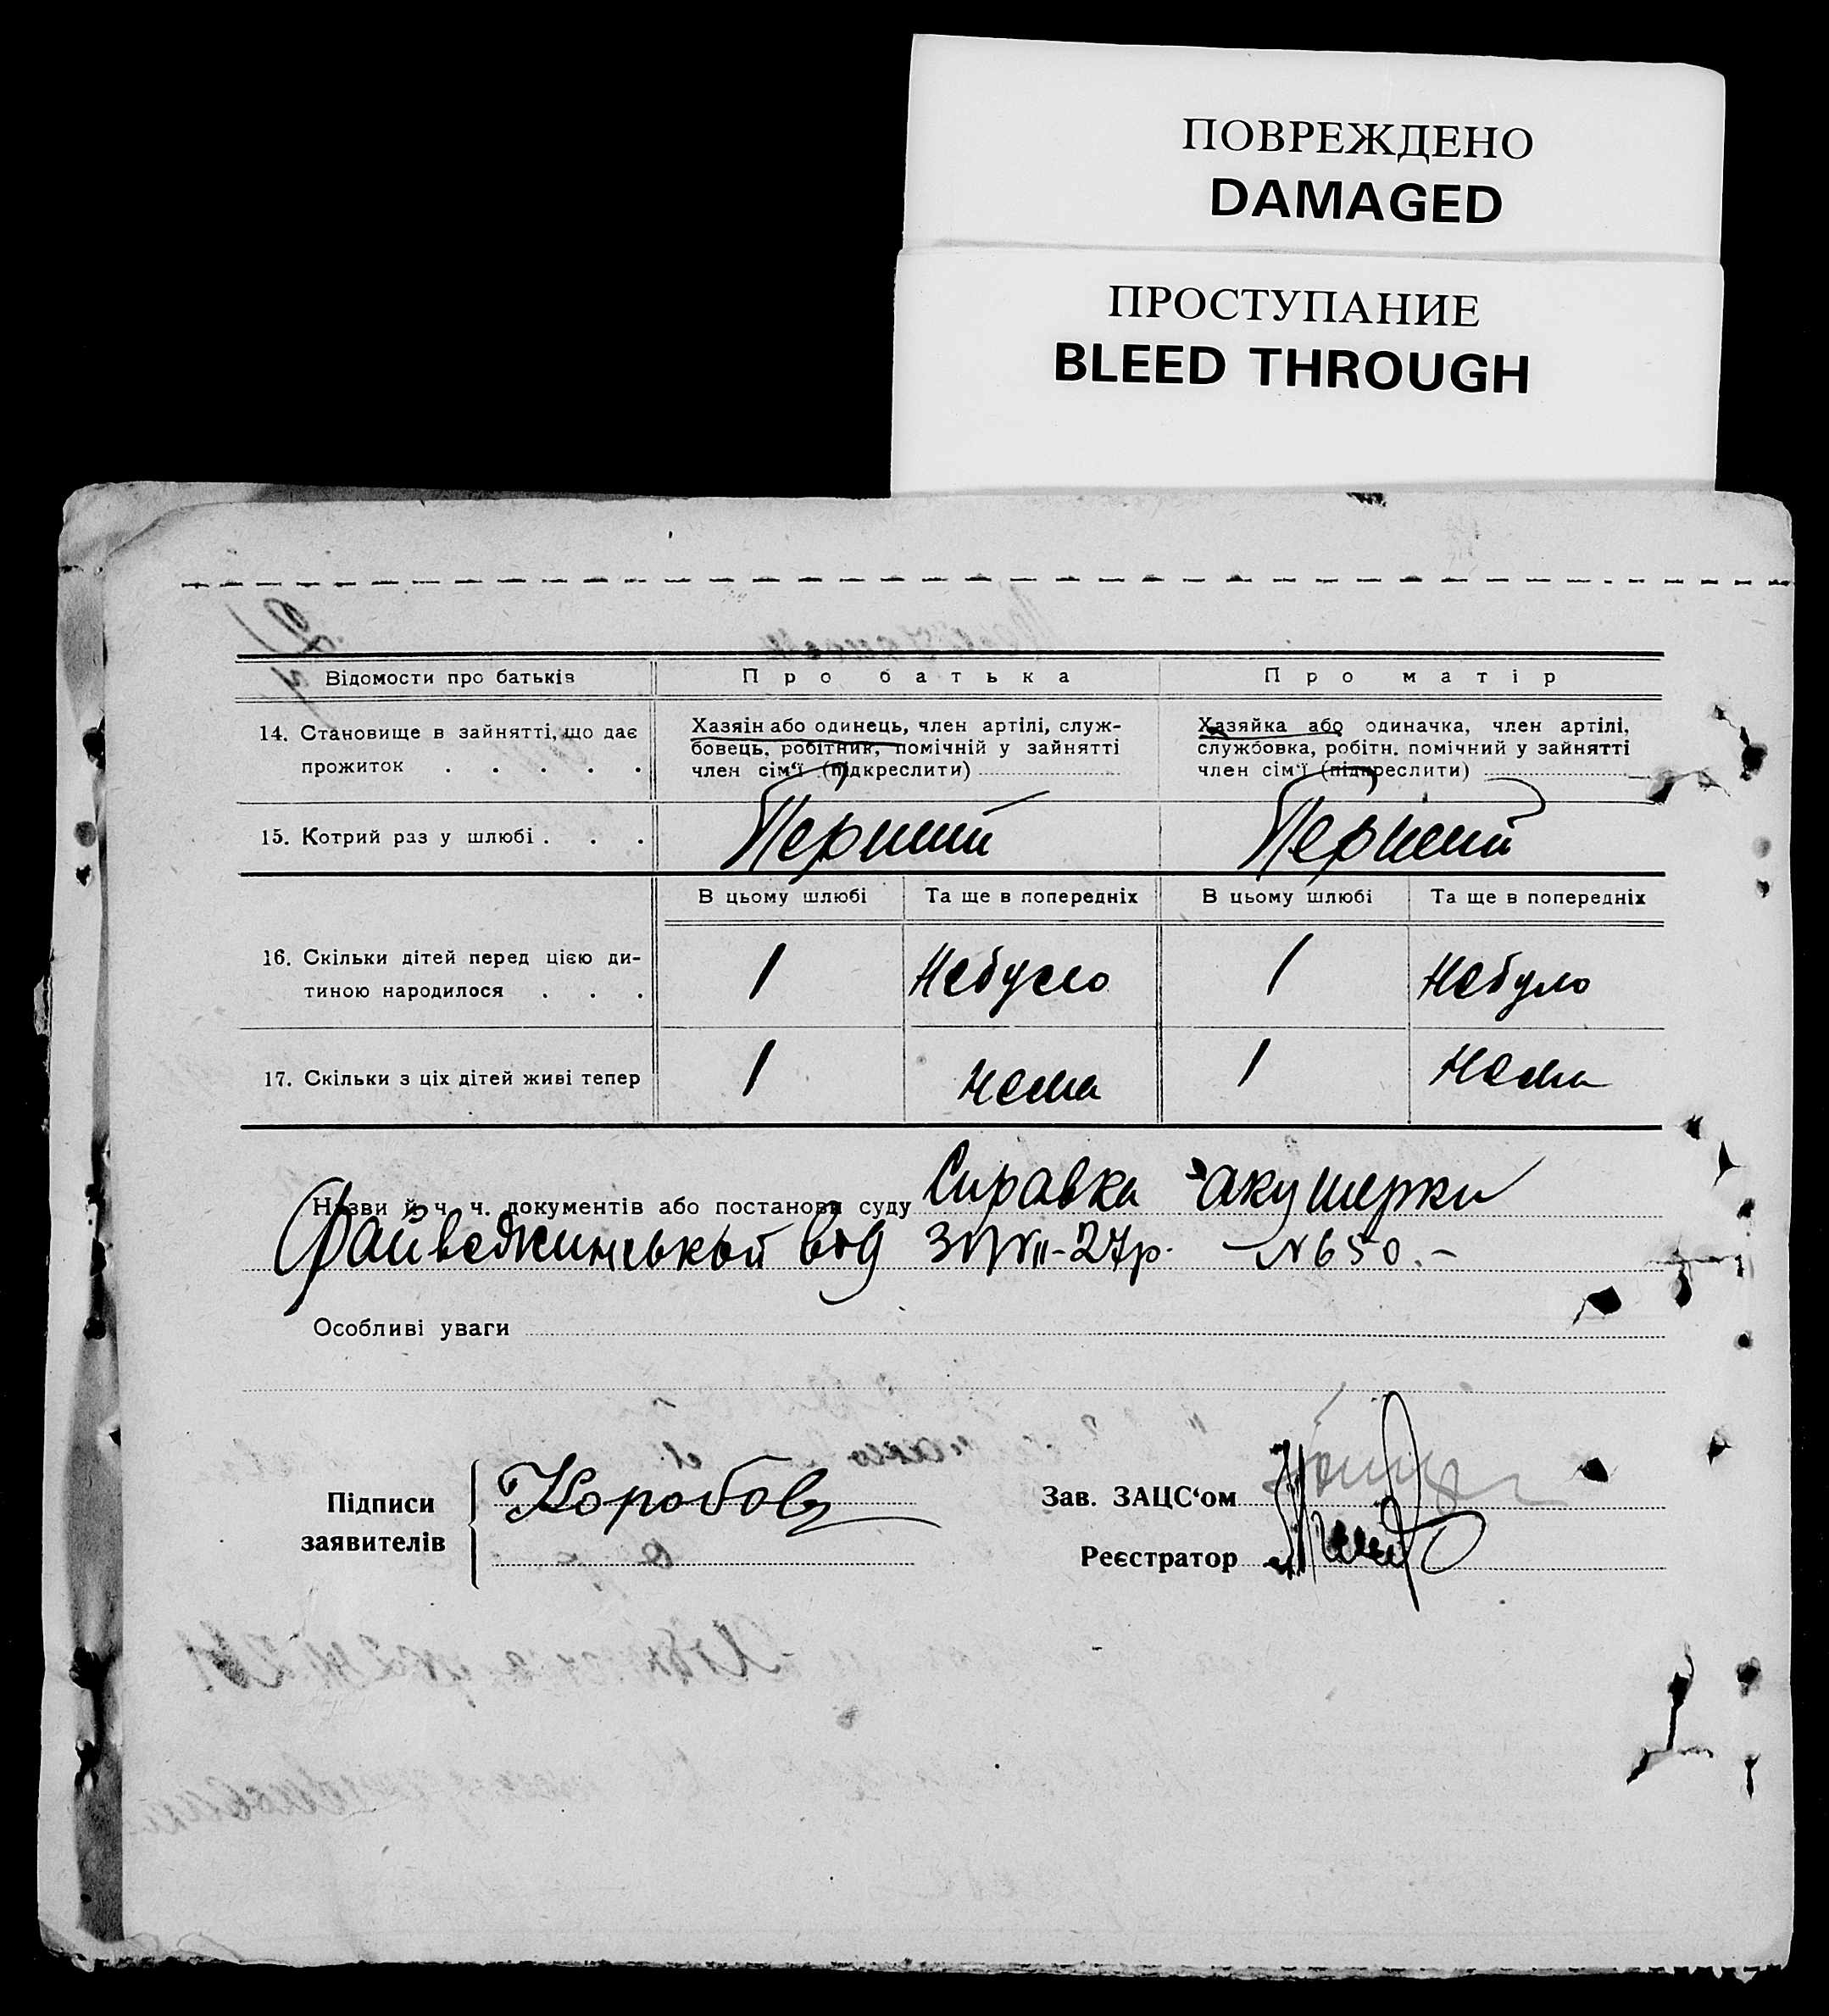 ПОВРЕЖДЕНО
DAMAGED
ПРОСТУПАНИЕ
BLEED THROUGH
Відомости про батьків
Про батька
Про матір
14. Становище в зайнятті, що дає
прожиток . . . . .
Хазяін або одинець, член артілі, служ-
бовець, робітник, помічній у зайнятті
член сім'ї (підкреслити)
Хазяйка або одиначка, член артілі,
службовка, робітн. помічний у зайнятті
член сім'ї (підкреслити)
15. Котрий раз у шлюбі . . .
Перший
Перший
В цьому шлюбі
Та ще в попередніх
В цьому шлюбі
Та ще в попередніх
16. Скільки дітей перед цією ди-
тиною народилося . . .
1
Небуло
1
Небуло
17. Скільки з ціх дітей живі тепер
1
Нема
1
Нема
Назви й ч. ч. документів або постанови суду Справка акушерки
від 27р. № 650.-
Особливі уваги
Підписи
заявителів
Коробов
Зав. ЗАЦС'ом
Реєстратор